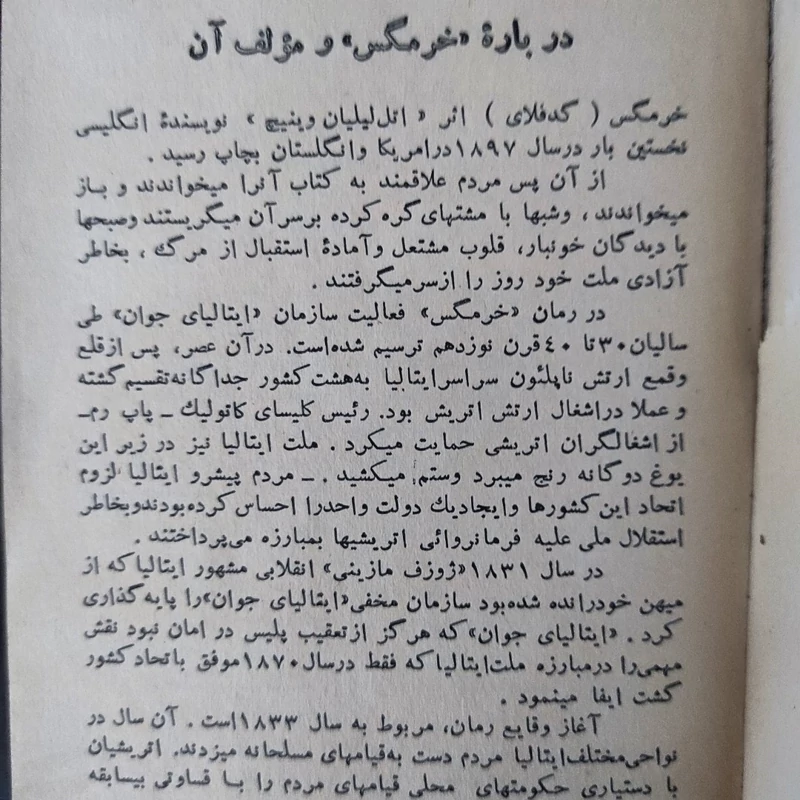 در بارهٔ «خرمگس» و مؤلف آن
خرمگس ( گدفلای ) اثر « اتل‌لیلیان وینیچ » نویسندهٔ انگلیسی
نخستین بار درسال ۱۸۹۷درامریکا وانگلستان بچاپ رسید .
از آن پس مردم علاقمند به کتاب آنرا میخواندند و باز
میخواندند، وشبها با مشتهای گره کرده برسرآن میگریستند وصبحها
با دیدگان خونبار، قلوب مشتعل وآمادهٔ استقبال از مرگ ، بخاطر
آزادی ملت خود روز را ازسرمیگرفتند .
در رمان «خرمگس» فعالیت سازمان «ایتالیای جوان» طی
سالیان۳۰تا ۴۰قرن نوزدهم ترسیم شده‌است. درآن عصر، پس ازقلع
وقمع ارتش ناپلئون سراسرایتالیا به‌هشت کشور جداگانه‌تقسیم‌گشته
و عملا دراشغال ارتش اتریش بود. رئیس کلیسای کاتولیك ـ پاپ رم‌ـ
از اشغالگران اتریشی حمایت میکرد . ملت ایتالیا نیز در زیر این
یوغ دوگانه رنج میبرد وستم میکشید . ـ مردم پیشرو ایتالیا لزوم
اتحاد این‌کشورها وایجادیك دولت واحدرا احساس کرده‌بودندوبخاطر
استقلال ملی علیه فرمانروائی اتریشیها بمبارزه می‌پرداختند .
در سال ۱۸۳۱«ژوزف مازینی» انقلابی مشهور ایتالیاکه از
میهن خودرانده شده‌بود سازمان مخفی«ایتالیای جوان»را پایه‌گذاری
کرد . «ایتالیای جوان»که هرگز ازتعقیب پلیس در امان نبود نقش
مهمی‌را درمبارزه ملت‌ایتالیاکه فقط درسال۱۸۷۰موفق باتحادکشور
گشت ایفا مینمود .
آغاز وقایع رمان، مربوط به سال ۱۸۳۳است . آن سال در
نواحی‌مختلف‌ایتالیا مردم دست به‌قیامهای مسلحانه میزدند. اتریشیان
با دستیاری حکومتهای محلی قیامهای مردم را بـا قساوتی بیسابقه